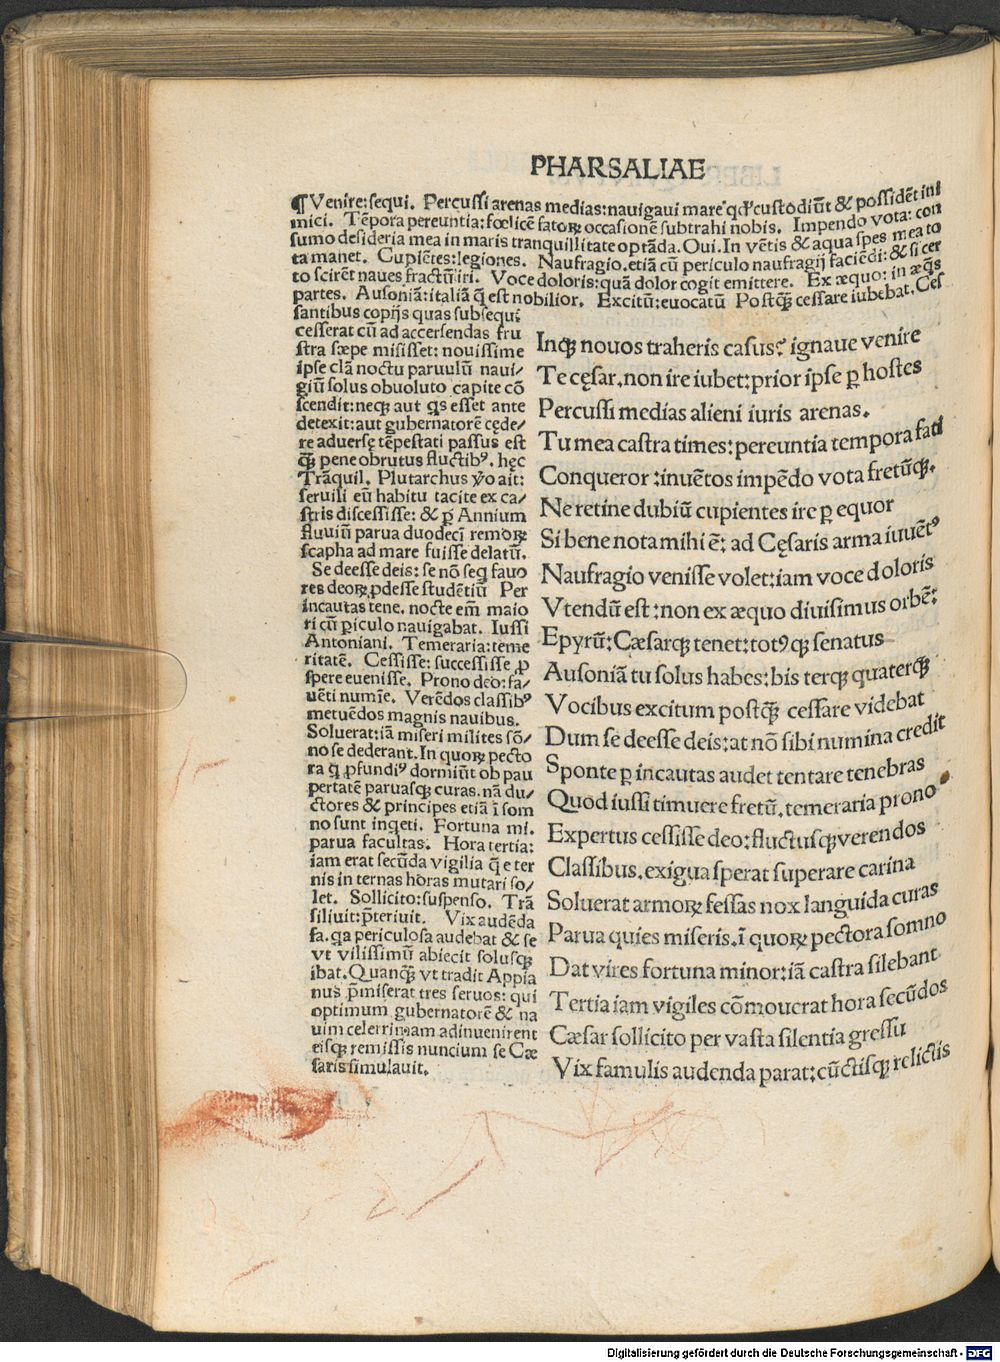 PHARSALIAE
¶ Venire: sequi. Percussi arenas medias: nauigaui mare qđ custodiūt & possidēt ini
mici. Tēpora pereuntia: fœlicē fatoꝝ occasionē subtrahi nobis. Impendo vota: con
sumo desideria mea in maris tranquillitate optāda. Qui. In vētis & aqua spes mea to
ta manet. Cupiētes: legiones. Naufragio. etiā cū periculo naufragij faciēdi: & si cer
to scirēt naues fractū iri. Voce doloris: quā dolor cogit emittere. Ex æquo: in æq̄s
partes. Ausoniā: italiā q̄ est nobilior. Excitū: euocatū Postq̄ꝫ cessare iubebat. Ces
santibus copijs quas subsequi
cesserat cū ad accersendas fru
stra sæpe misisset: nouissime
ipse clā noctu paruulū naui/
giū solus obuoluto capite cō
scendit: neqꝫ aut q̇s esset ante
detexit: aut gubernatorē cęde/
re aduersę tēpestati passus est
q̄ꝫ pene obrutus fluctibꝰ. hęc
Trāquil. Plutarchus ꝟo ait:
seruili eū habitu tacite ex ca/
stris discessisse: & ꝑ Annium
fluuiū parua duodecī remoꝝ
scapha ad mare fuisse delatū.
Se deesse deis: se nō seq̇ fauo
res deoꝝ ꝓdesse studētiū Per
incautas tene. nocte em̄ maio
ri cū ꝑiculo nauigabat. Iussi
Antoniani. Temeraria: teme
ritatē. Cessisse: successisse ꝓ
spere euenisse. Prono deo: fa/
uēti numīe. Verēdos classibꝰ
metuēdos magnis nauibus.
Soluerat: iā miseri milites sō/
no se dederant. In quoꝝ pecto
ra q̇ ꝓfundiꝰ dormiūt ob pau
pertatē paruasqꝫ curas. nā du/
ctores & principes etiā ī som
no sunt inq̇eti. Fortuna mi.
parua facultas. Hora tertia:
iam erat secūda vigilia q̄ e ter
nis in ternas horas mutari so/
let. Sollicito: suspenso. Trā
siliuit: p̄teriuit. Vix audēda
fa. qa periculosa audebat & se
vt vilissimū abiecit solusqꝫ
ibat. Quanq̄ꝫ vt tradit Appia
nus p̄miserat tres seruos: qui
optimum gubernatorē & na
uim celerrimam adinuenirent
eisqꝫ remissis nuncium se Cæ
saris simulauit.
Inqꝫ nouos traheris casus? ignaue venire
Te cęsar. non ire iubet: prior ipse ꝑ hostes
Percussi medias alieni iuris arenas.
Tu mea castra times: pereuntia tempora fati
Conqueror: in uētos impēdo vota fretūqꝫ.
Ne retine dubiū cupientes ire ꝑ equor
Si bene nota mihi ē: ad Cęsaris arma iuuētꝰ
Naufragio venisse volet: iam voce doloris
Vtendū est: non ex æquo diuisimus orbē:
Epyrū: Cæsarqꝫ tenet: totꝰqꝫ senatus
Ausoniā tu solus habes: bis terqꝫ quaterqꝫ
Vocibus excitum postq̄ꝫ cessare videbat
Dum se deesse deis: at nō sibi numina credit
Sponte ꝑ incautas audet tentare tenebras
Quod iussi timuere fretū. temeraria prono
Expertus cessisse deo: fluctusqꝫ verendos
Classibus. exigua sperat superare carina
Soluerat armoꝝ fessas nox languida curas
Parua quies miseris. ī quoꝝ pectora somno
Dat vires fortuna minor: iā castra silebant
Tertia iam vigiles cōmouerat hora secūdos
Cæsar sollicito per vasta silentia gressu
Vix famulis audenda parat: cūctisqꝫ relictis
Digitalisierung gefördert durch die Deutsche Forschungsgemeinschaft - DFG